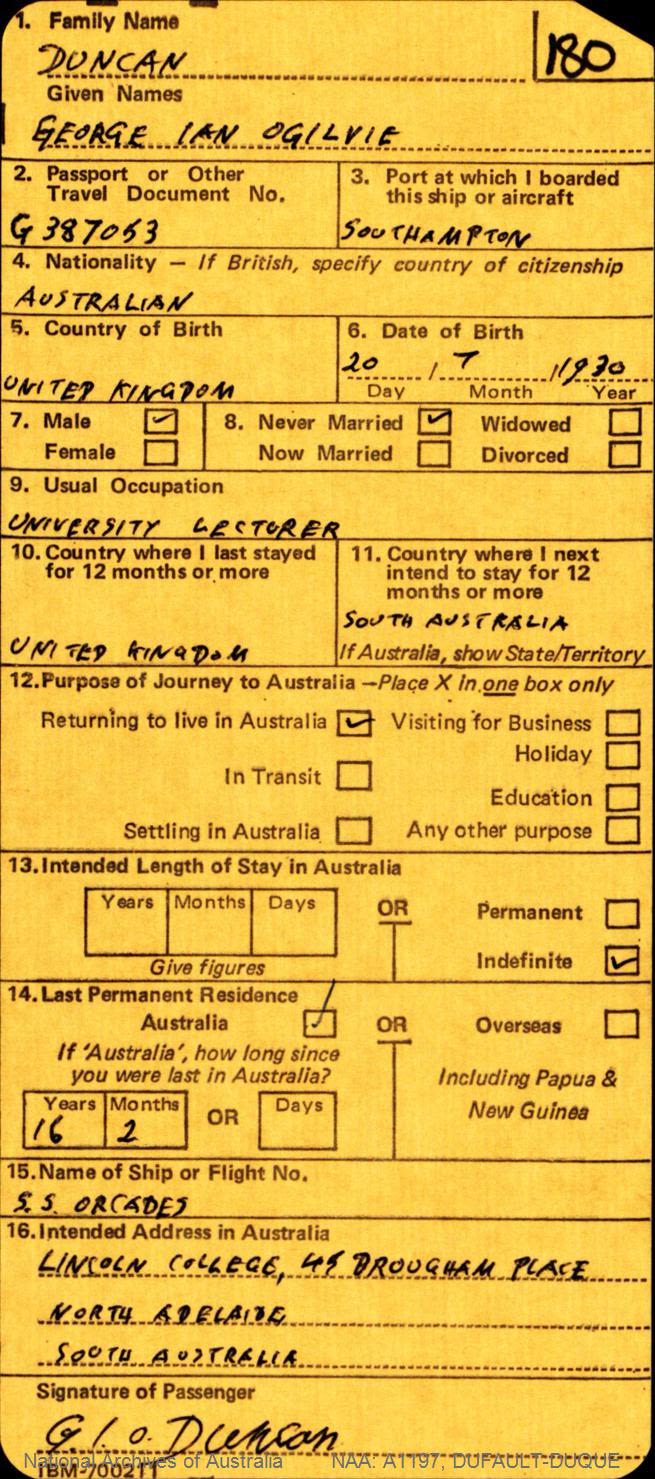 1. Family Name
DUNCAN
180
Given Names
GEORGE IAN OGILVIE
2. Passport or Other
Travel Document No.
G 387053
3. Port at which I boarded
this ship or aircraft
SOUTHAMPTON
4. Nationality — If British, specify country of citizenship
AUSTRALIAN
5. Country of Birth
UNITED KINGDOM
6. Date of Birth
20 / 7 / 1930
Day Month Year
7. Male
Female
8. Never Married
Now Married
Widowed
Divorced
9. Usual Occupation
UNIVERSITY LECTURER
10. Country where I last stayed
for 12 months or more
UNITED KINGDOM
11. Country where I next
intend to stay for 12
months or more
SOUTH AUSTRALIA
If Australia, show State/Territory
12. Purpose of Journey to Australia —Place X in one box only
Returning to live in Australia
In Transit
Settling in Australia
Visiting for Business
Holiday
Education
Any other purpose
13. Intended Length of Stay in Australia
Years Months Days
Give figures
OR
Permanent
Indefinite
14. Last Permanent Residence
Australia
If 'Australia', how long since
you were last in Australia?
Years Months
16 2
OR
Days
OR
Overseas
Including Papua &
New Guinea
15. Name of Ship or Flight No.
S.S. ORCADES
16. Intended Address in Australia
LINCOLN COLLEGE, 45 BROUGHAM PLACE
NORTH ADELAIDE
SOUTH AUSTRALIA
Signature of Passenger
G. I. O. Duncan
National Archives of Australia NAA: A1197, DUFAULT-DUQUE
IBM-700211